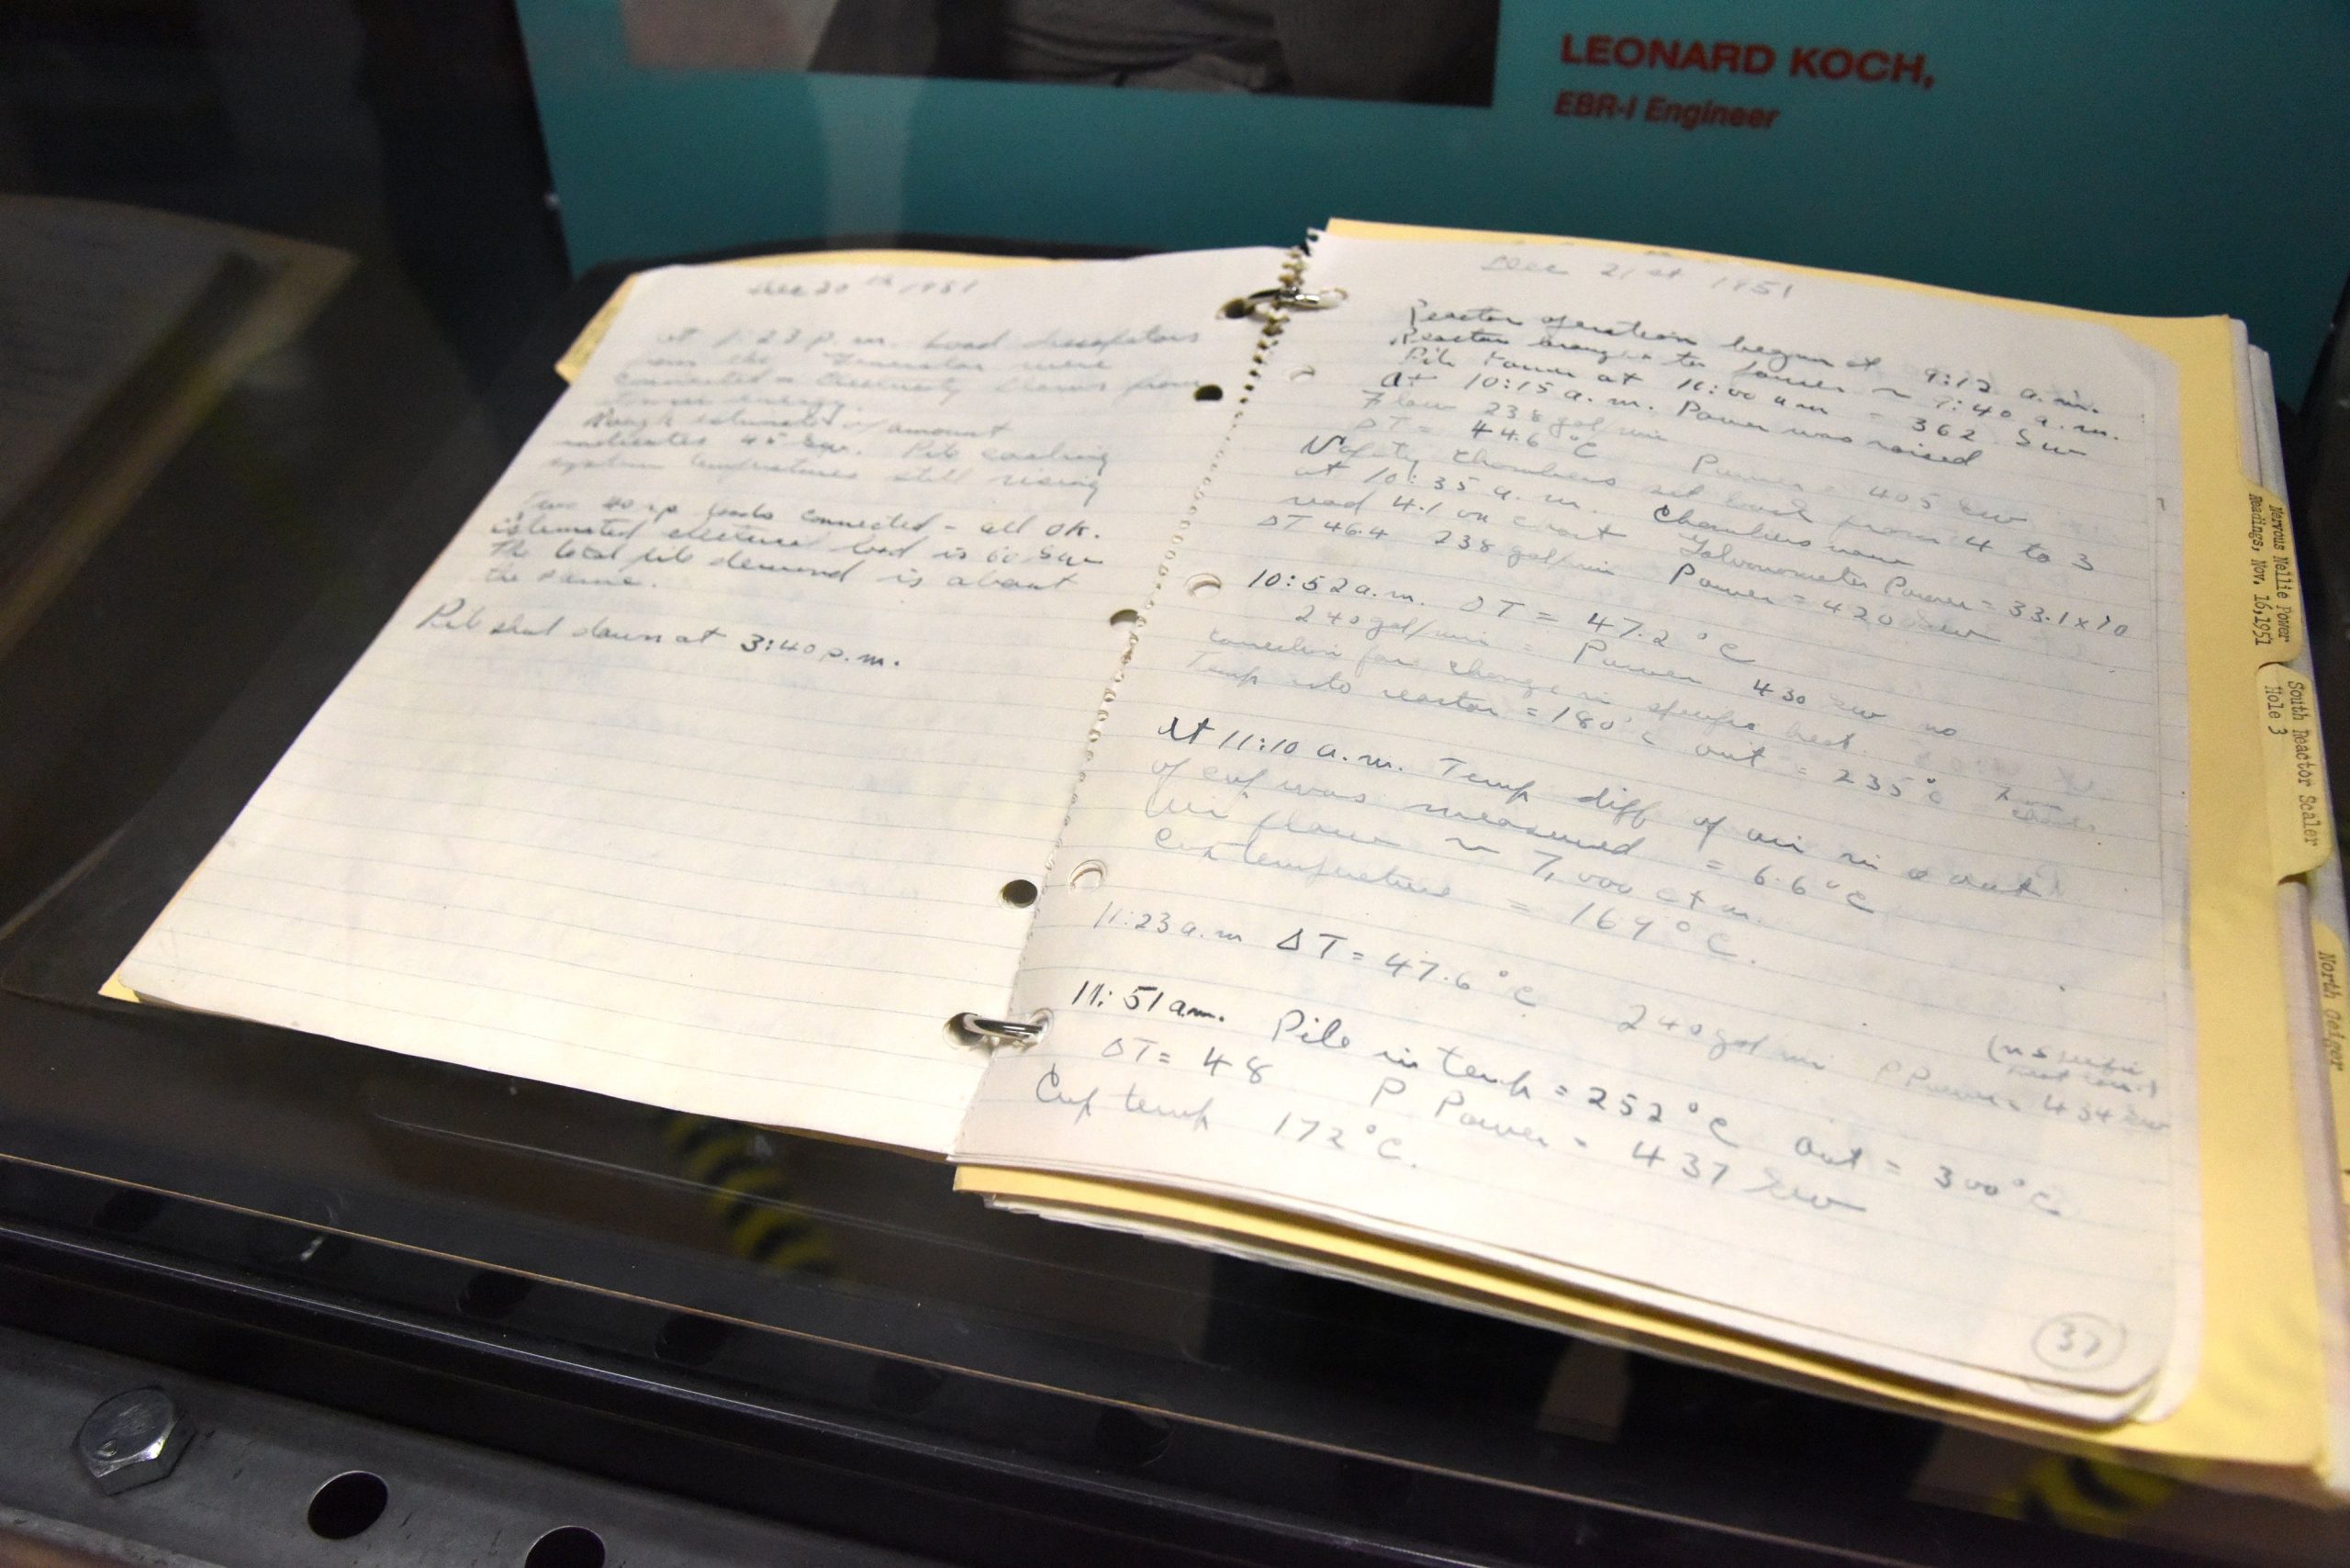 LEONARD KOCH,
EBR-I Engineer
Dec 20th 1951
At 1:23 p.m. Load dissipators
from the generator were
connected - Electricity flows from
energy.
Rough estimate of amount
indicates 45 kw. Pile cooling
system temperatures still rising
Two 40 loads connected - all OK.
Estimated electrical load is 60 kw
The total pile demand is about
the same.
Pile shut down at 3:40 p.m.
Dec 21st 1951
Reactor operation began at 9:12 a.m.
Reactor brought to power ~ 9:40 a.m.
Pile Power at 10:00 am = 362 kw
At 10:15 a.m. Power was raised
Flow 238 gal/min Power = 405 kw
ΔT = 44.6 °C
Safety chambers set back from 4 to 3
at 10:35 a.m. Chambers now
read 4.1 on chart Galvanometer Power = 33.1 x 10
ΔT 46.4 238 gal/min Power = 420 kw
10:52 a.m. ΔT = 47.2 °C
240 gal/min = Power 430 kw no
correction for change in specific heat.
Temp into reactor = 180°C out = 235°C
At 11:10 a.m. Temp diff of air in & out
of cup was measured = 6.6°C
Air flow ~ 7,000 cfm.
Cup temperature = 164°C.
11:23 a.m ΔT = 47.6 °C 240 gal min Power = 434 kw
(no specific
heat corr.)
11:51 am. Pile in temp = 252 °C out = 300°C
ΔT = 48 P Power = 437 kw
Cup temp 172°C.
37
Nervous Nellie Power
Readings, Nov. 16, 1951
South Reactor Scaler
Hole 3
North Geiger